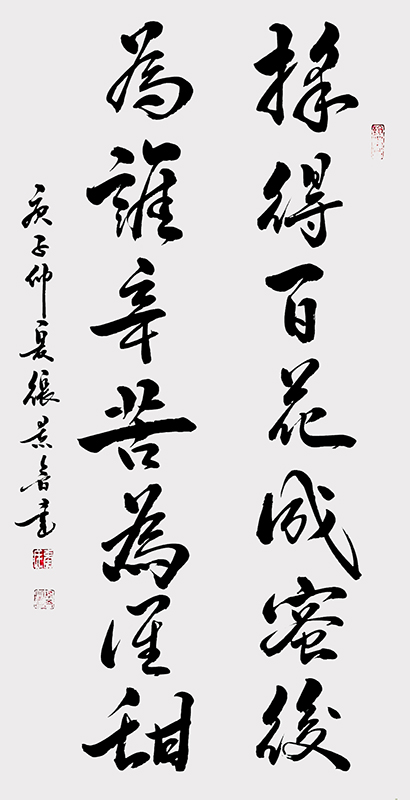 採得百花成蜜後
為誰辛苦為誰甜
庚子仲夏張景書